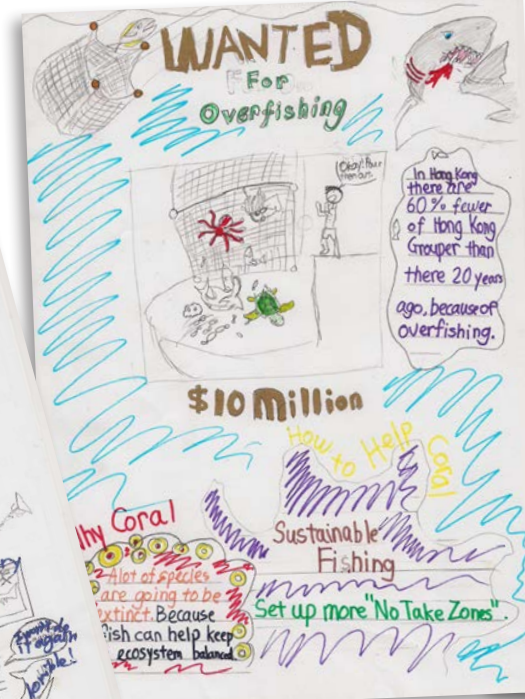 WANTED
For
Overfishing
Okay! Pour
them out.
In Hong Kong
there are
60% fewer
of Hong Kong
Grouper than
there 20 years
ago, because of
overfishing.
$10 Million
How to Help Coral
Sustainable
Fishing
Set up more "No Take Zones".
hy Coral
A lot of species
are going to be
extinct. Because
fish can help keep
ecosystem balanced
it again